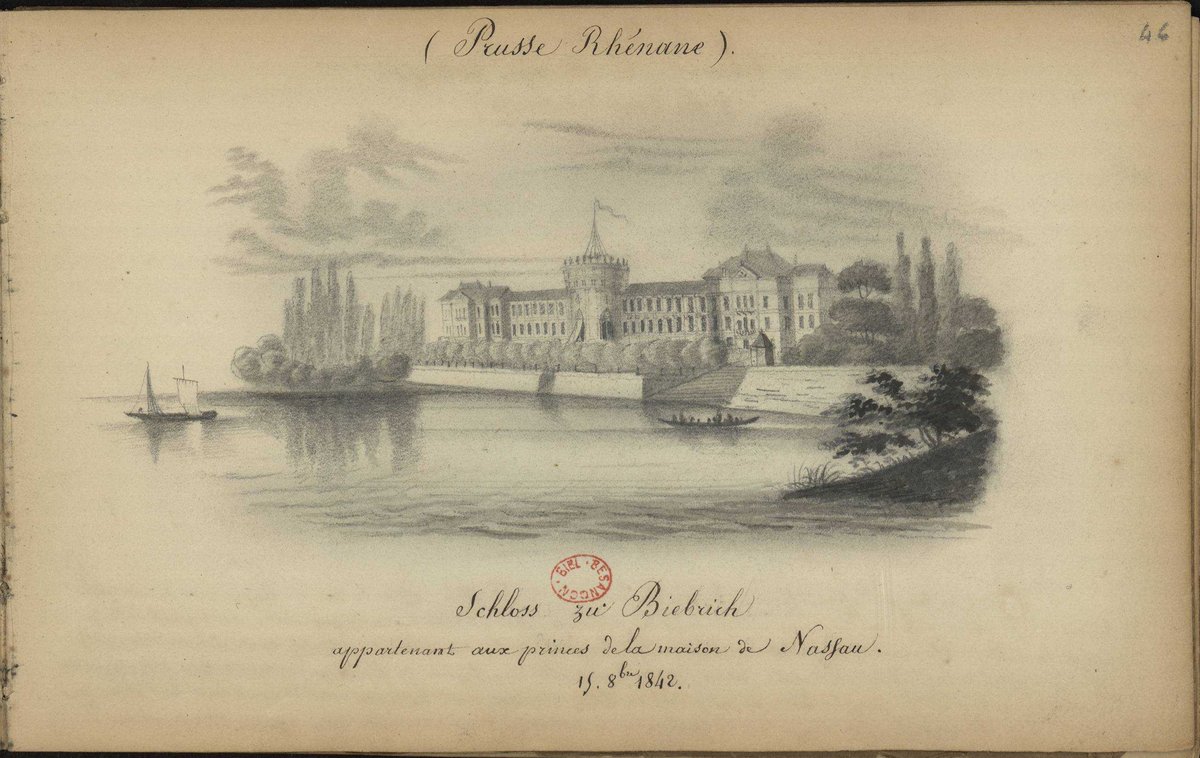 (Prusse Rhénane).
46
BIBL. BESANCON
Schloss zu Biebrich
appartenant aux princes de la maison de Nassau.
15. 8bre 1842.